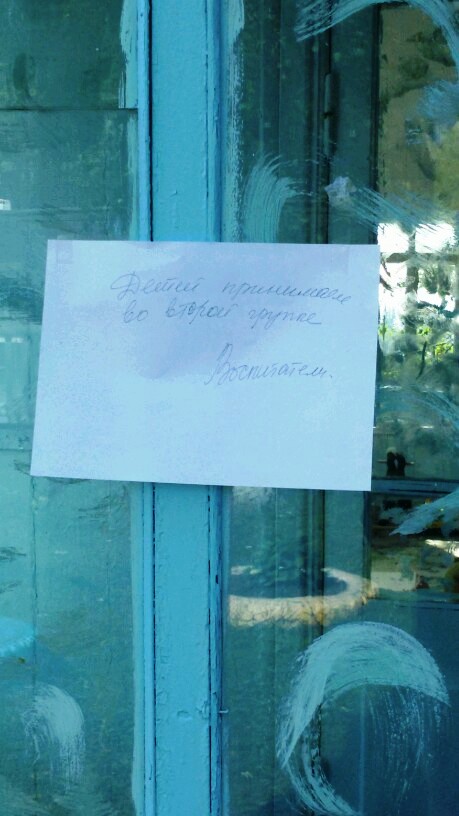 Детей принимаем
во второй группе
Воспитатели.